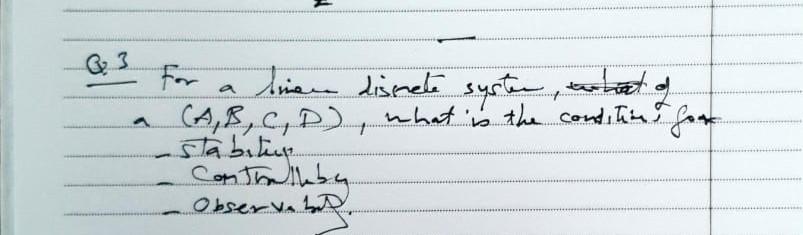 Q.3 For a linear discrete system, what of
a (A,B,C,D), what is the conditions for
- Stability
- Controllaby
- Observabity.